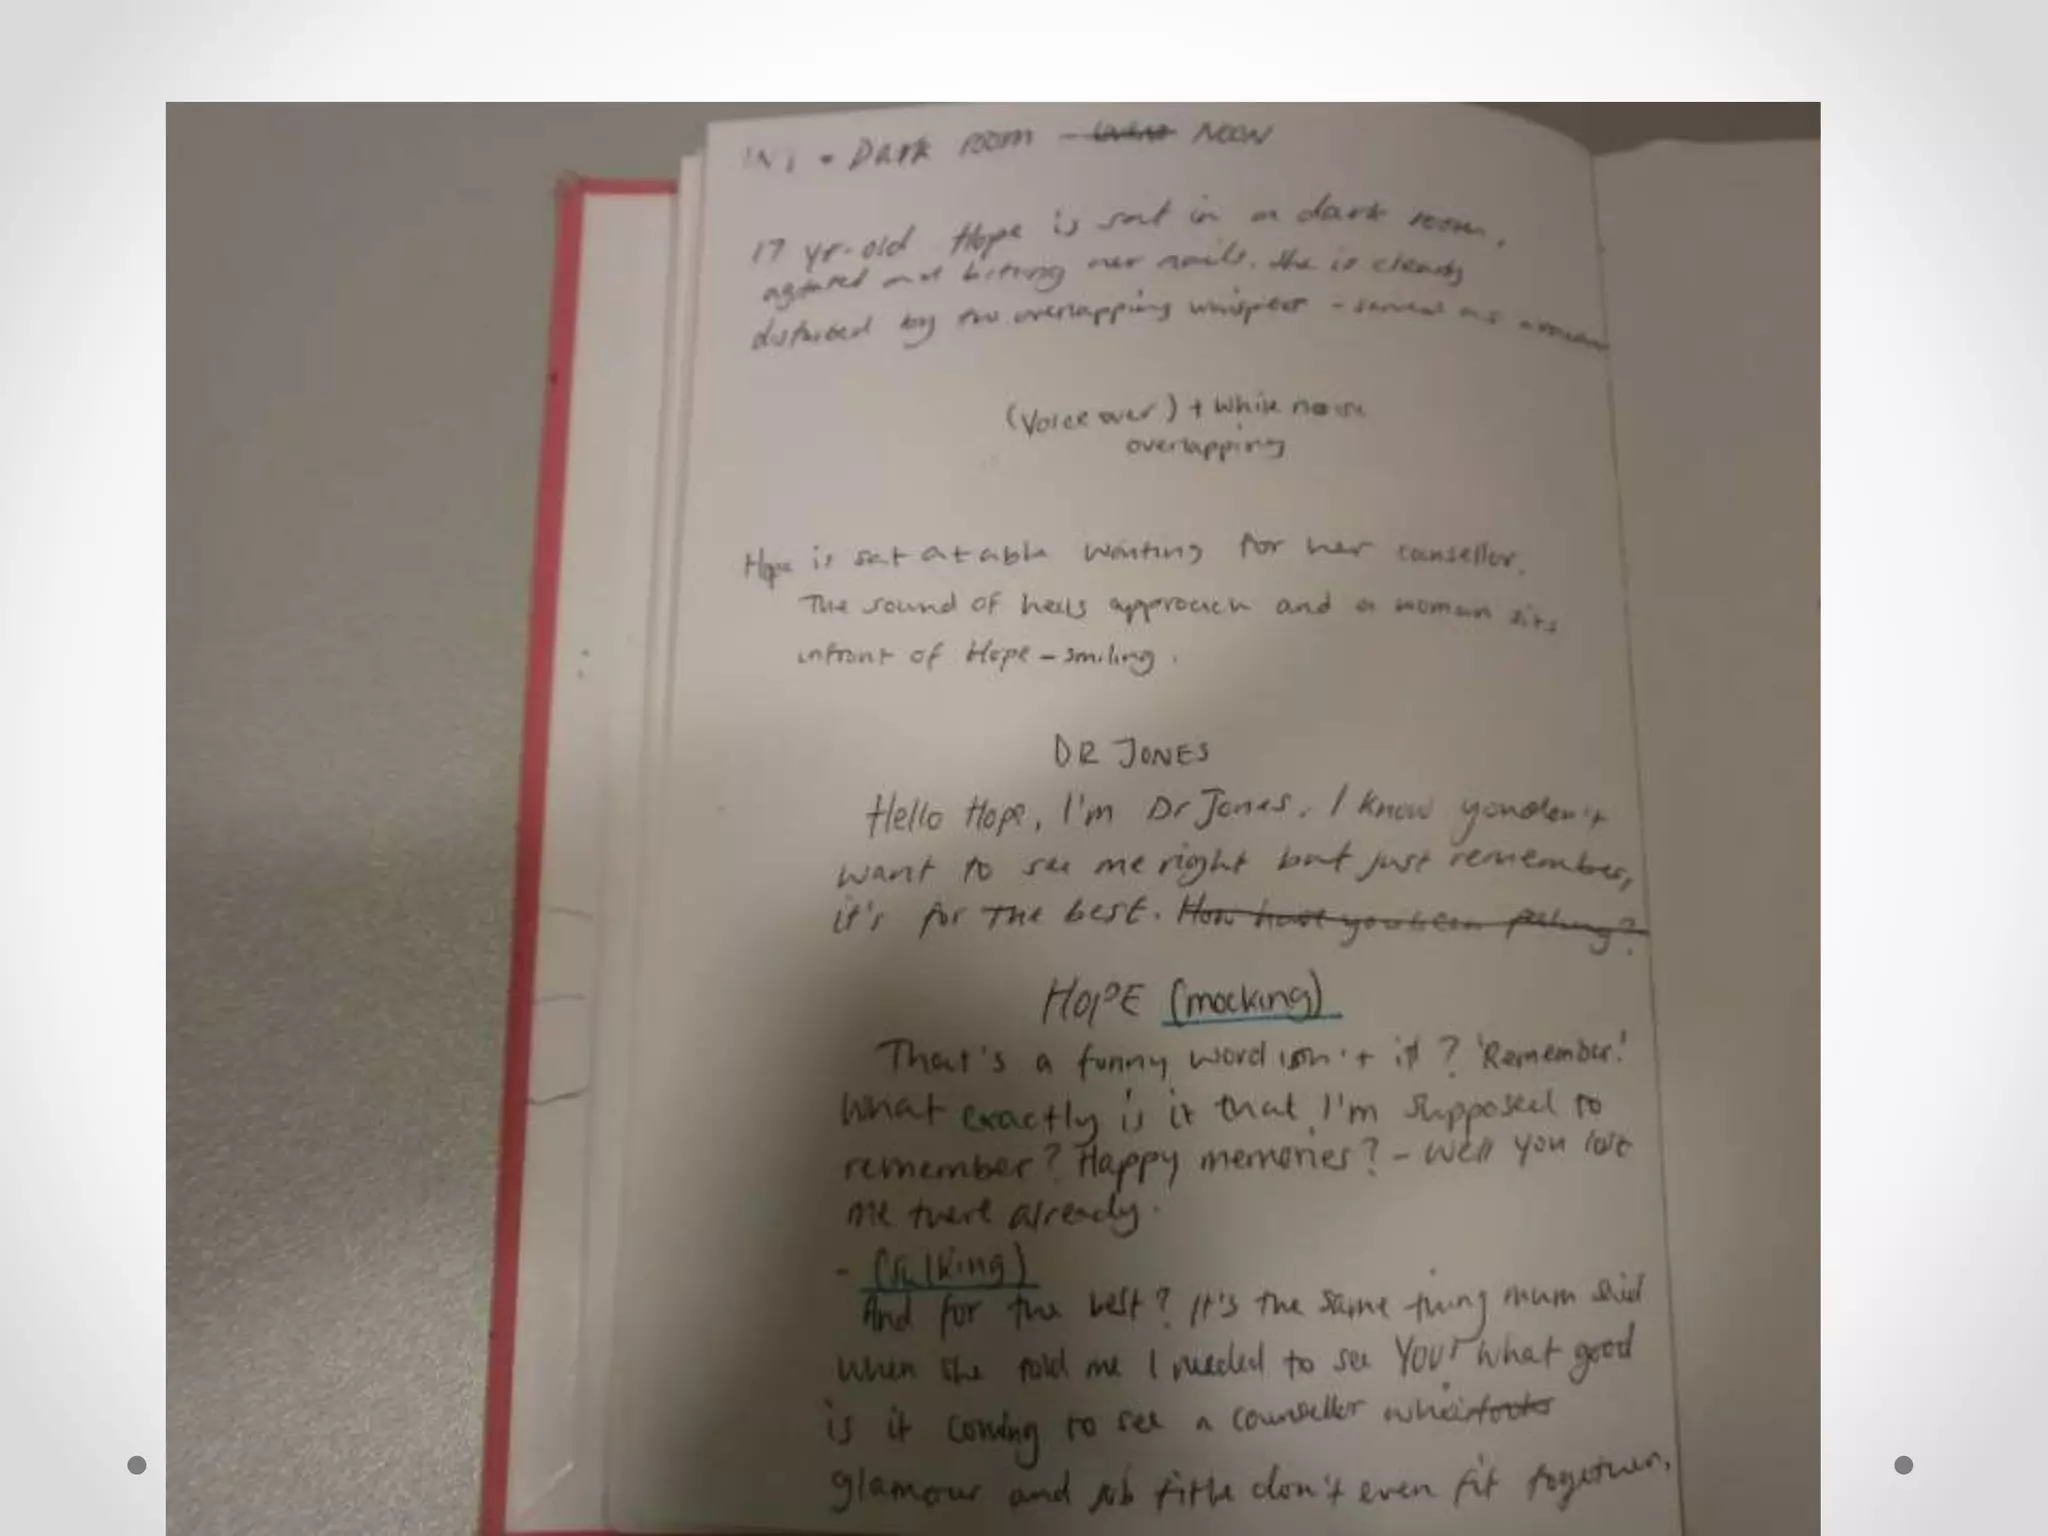 INT • Dark room - NOON
17 yr-old Hope is sat in a dark room,
agitated and biting her nails. She is clearly
disturbed by the overlapping whispers -
(Voice over) + white noise
overlapping
Hope is sat at able waiting for her counsellor.
The sound of heels approach and a woman sits
infront of Hope - smiling.
DR JONES
Hello Hope, I'm Dr Jones. I know you don't
want to see me right but just remember,
it's for the best. How have you been feeling?
HOPE (mocking)
That's a funny word isn't it? 'Remember.'
What exactly is it that I'm supposed to
remember? Happy memories? - Well you lost
me there already.
- (sulking)
And for the best? It's the same thing mum said
when she told me I needed to see YOU! What good
is it coming to see a counsellor
glamour and job title don't even fit together,